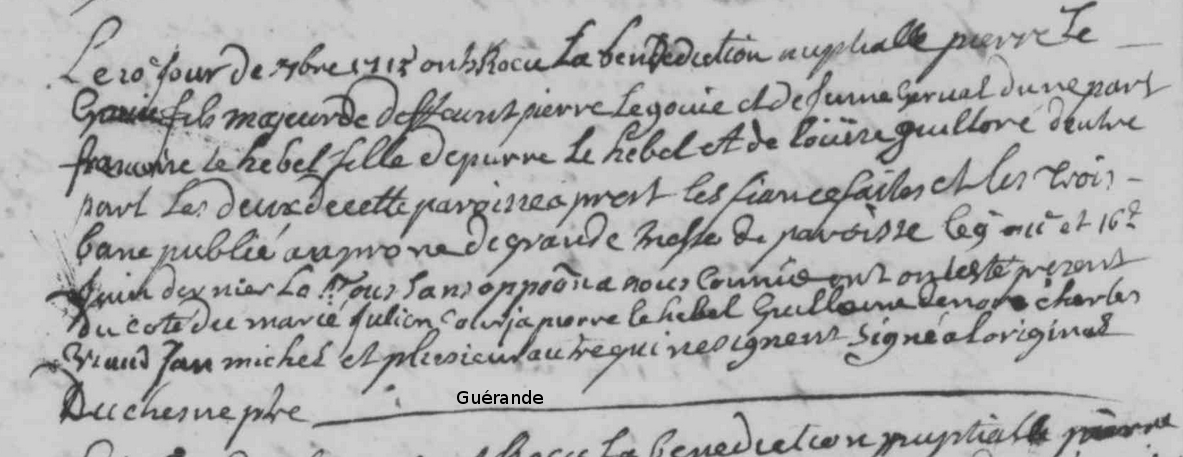 Le 10e jour de 7bre 1715 ont Recu La benediction nuptialle pierre Le
fils majeur de deffeunt pierre Legouie et de dune part
francoise le hebel fille de pierre Le hebel et de guilloré dautre
part Les deux de cette paroisse a prest les fiancefailes et les trois
banc publié au prone de grande messe de paroisse le 9 et 16e
Juin dernier sans oppoõn a nous connüe ont esté present
du coté du marié Julien pierre le hebel Guillaume charles
Jan michel et plusieur autre qui ne signent Signé a Loriginal
Duchesne ptre
Guérande
Recu La benediction nuptialle pierre